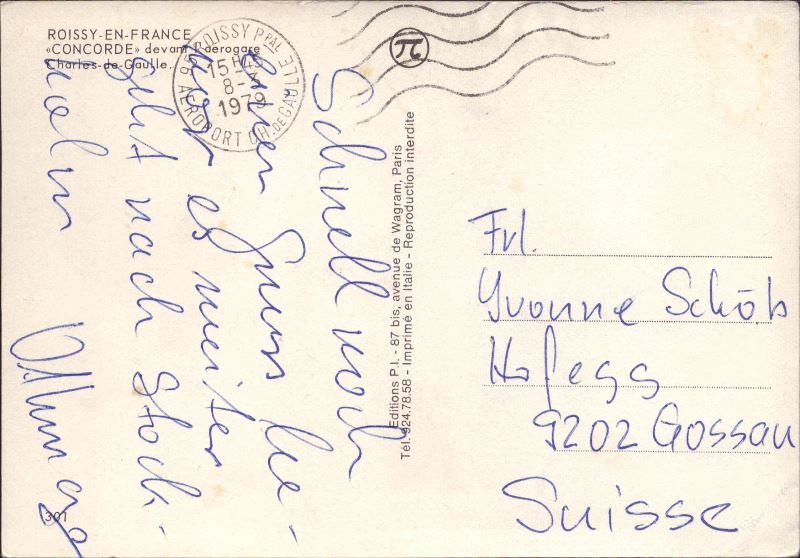 ROISSY-EN-FRANCE
«CONCORDE» devant l'aérogare
Charles-de-Gaulle.
ROISSY PPAL
15H45
8-3
1979
AEROPORT CH. DE GAULLE
Schnell noch
einen Gruss be-
vor es weiter
geht nach Stock-
holm
Editions P.I. - 87 bis, avenue de Wagram, Paris
Tél. 924.78.58 - Imprimé en Italie - Reproduction interdite
Frl.
Yvonne Schöb
Hofegg
9202 Gossau
Suisse
301